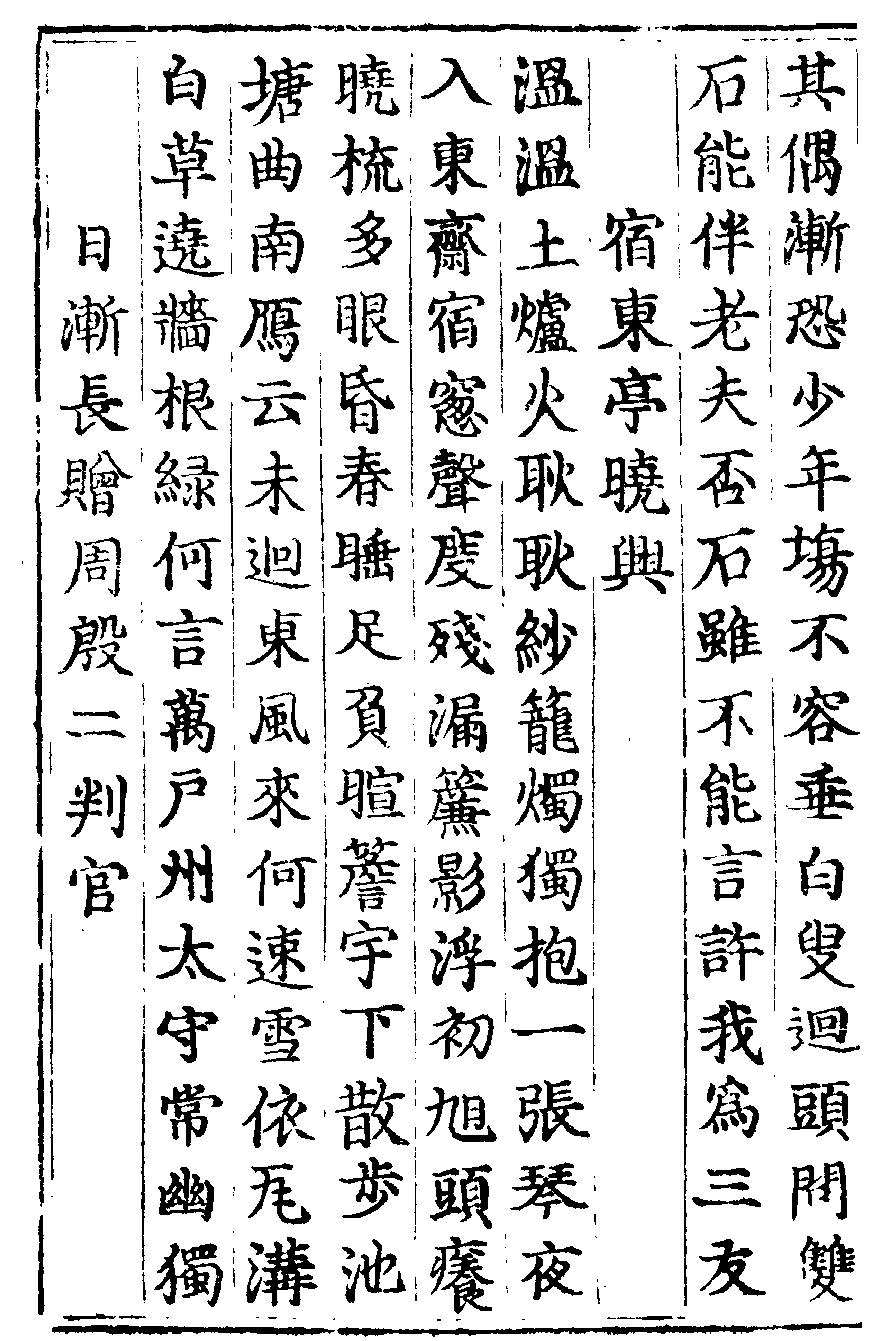 其偶漸恐少年塲不容垂白叟迴頭問雙
石能伴老夫否石雖不能言許我爲三友
宿東亭曉興
溫溫土爐火耿耿紗籠燭獨抱一張琴夜
入東齋宿窻聲度殘漏簾影浮初旭頭癢
曉梳多眼昏春睡足負暄簷宇下散步池
塘曲南鴈云未迴東風來何速雪依瓦溝
白草遶牆根緑何言萬戸州太守常幽獨
日漸長贈周殷二判官